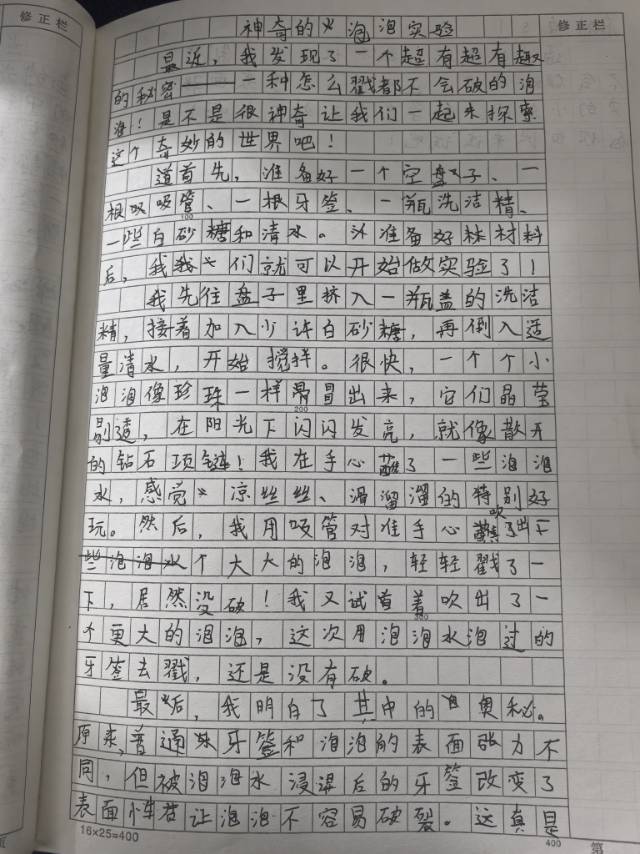 修正栏
修正栏
神奇的泡泡实验
最近，我发现了一个超有超有趣
的秘密——一种怎么戳都不会破的泡
泡！是不是很神奇让我们一起来探索
这个奇妙的世界吧！
道首先，准备好一个空盘子、一
根吸吸管、一根牙签、一瓶洗洁精、
一些白砂糖和清水。准备好材料
后，我们就可以开始做实验了！
我先往盘子里挤入一瓶盖的洗洁
精，接着加入少许白砂糖，再倒入适
量清水，开始搅拌。很快，一个个小
泡泡像珍珠一样冒出来，它们晶莹
剔透，在阳光下闪闪发亮，就像散开
的钻石项链！我在手心蘸了一些泡泡
水，感觉凉丝丝、滑溜溜的特别好
玩。然后，我用吸管对准手心吹出
个大大的泡泡，轻轻戳了一
下，居然没破！我又试着吹出了一
个更大的泡泡，这次用泡泡水泡过的
牙签去戳，还是没有破。
最后，我明白了其中的奥秘。
原来，普通牙签和泡泡的表面张力不
同，但被泡泡水浸湿后的牙签改变了
表面让泡泡不容易破裂。这真是
16×25=400
100
200
300
400
第
页